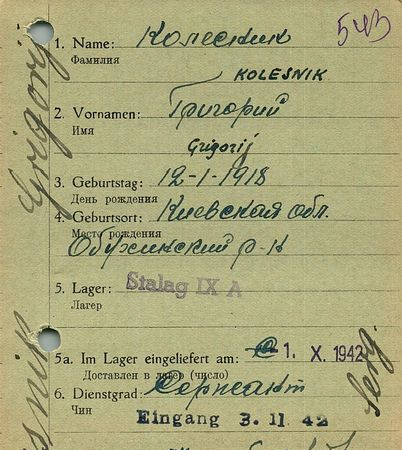 543
1. Name: Колесник
Фамилия
KOLESNIK
2. Vornamen: Григорий
Имя
Grigorij
3. Geburtstag: 12-1-1918
День рождения
4. Geburtsort: Киевская обл.
Место рождения
Обухинский р-н
5. Lager: Stalag IX A
Лагерь
5a. Im Lager eingeliefert am: 1. X. 1942
Доставлен в лагерь (число)
6. Dienstgrad: Сержант
Чин
Eingang 3. 11. 42
Grigorij
snik
Serg.